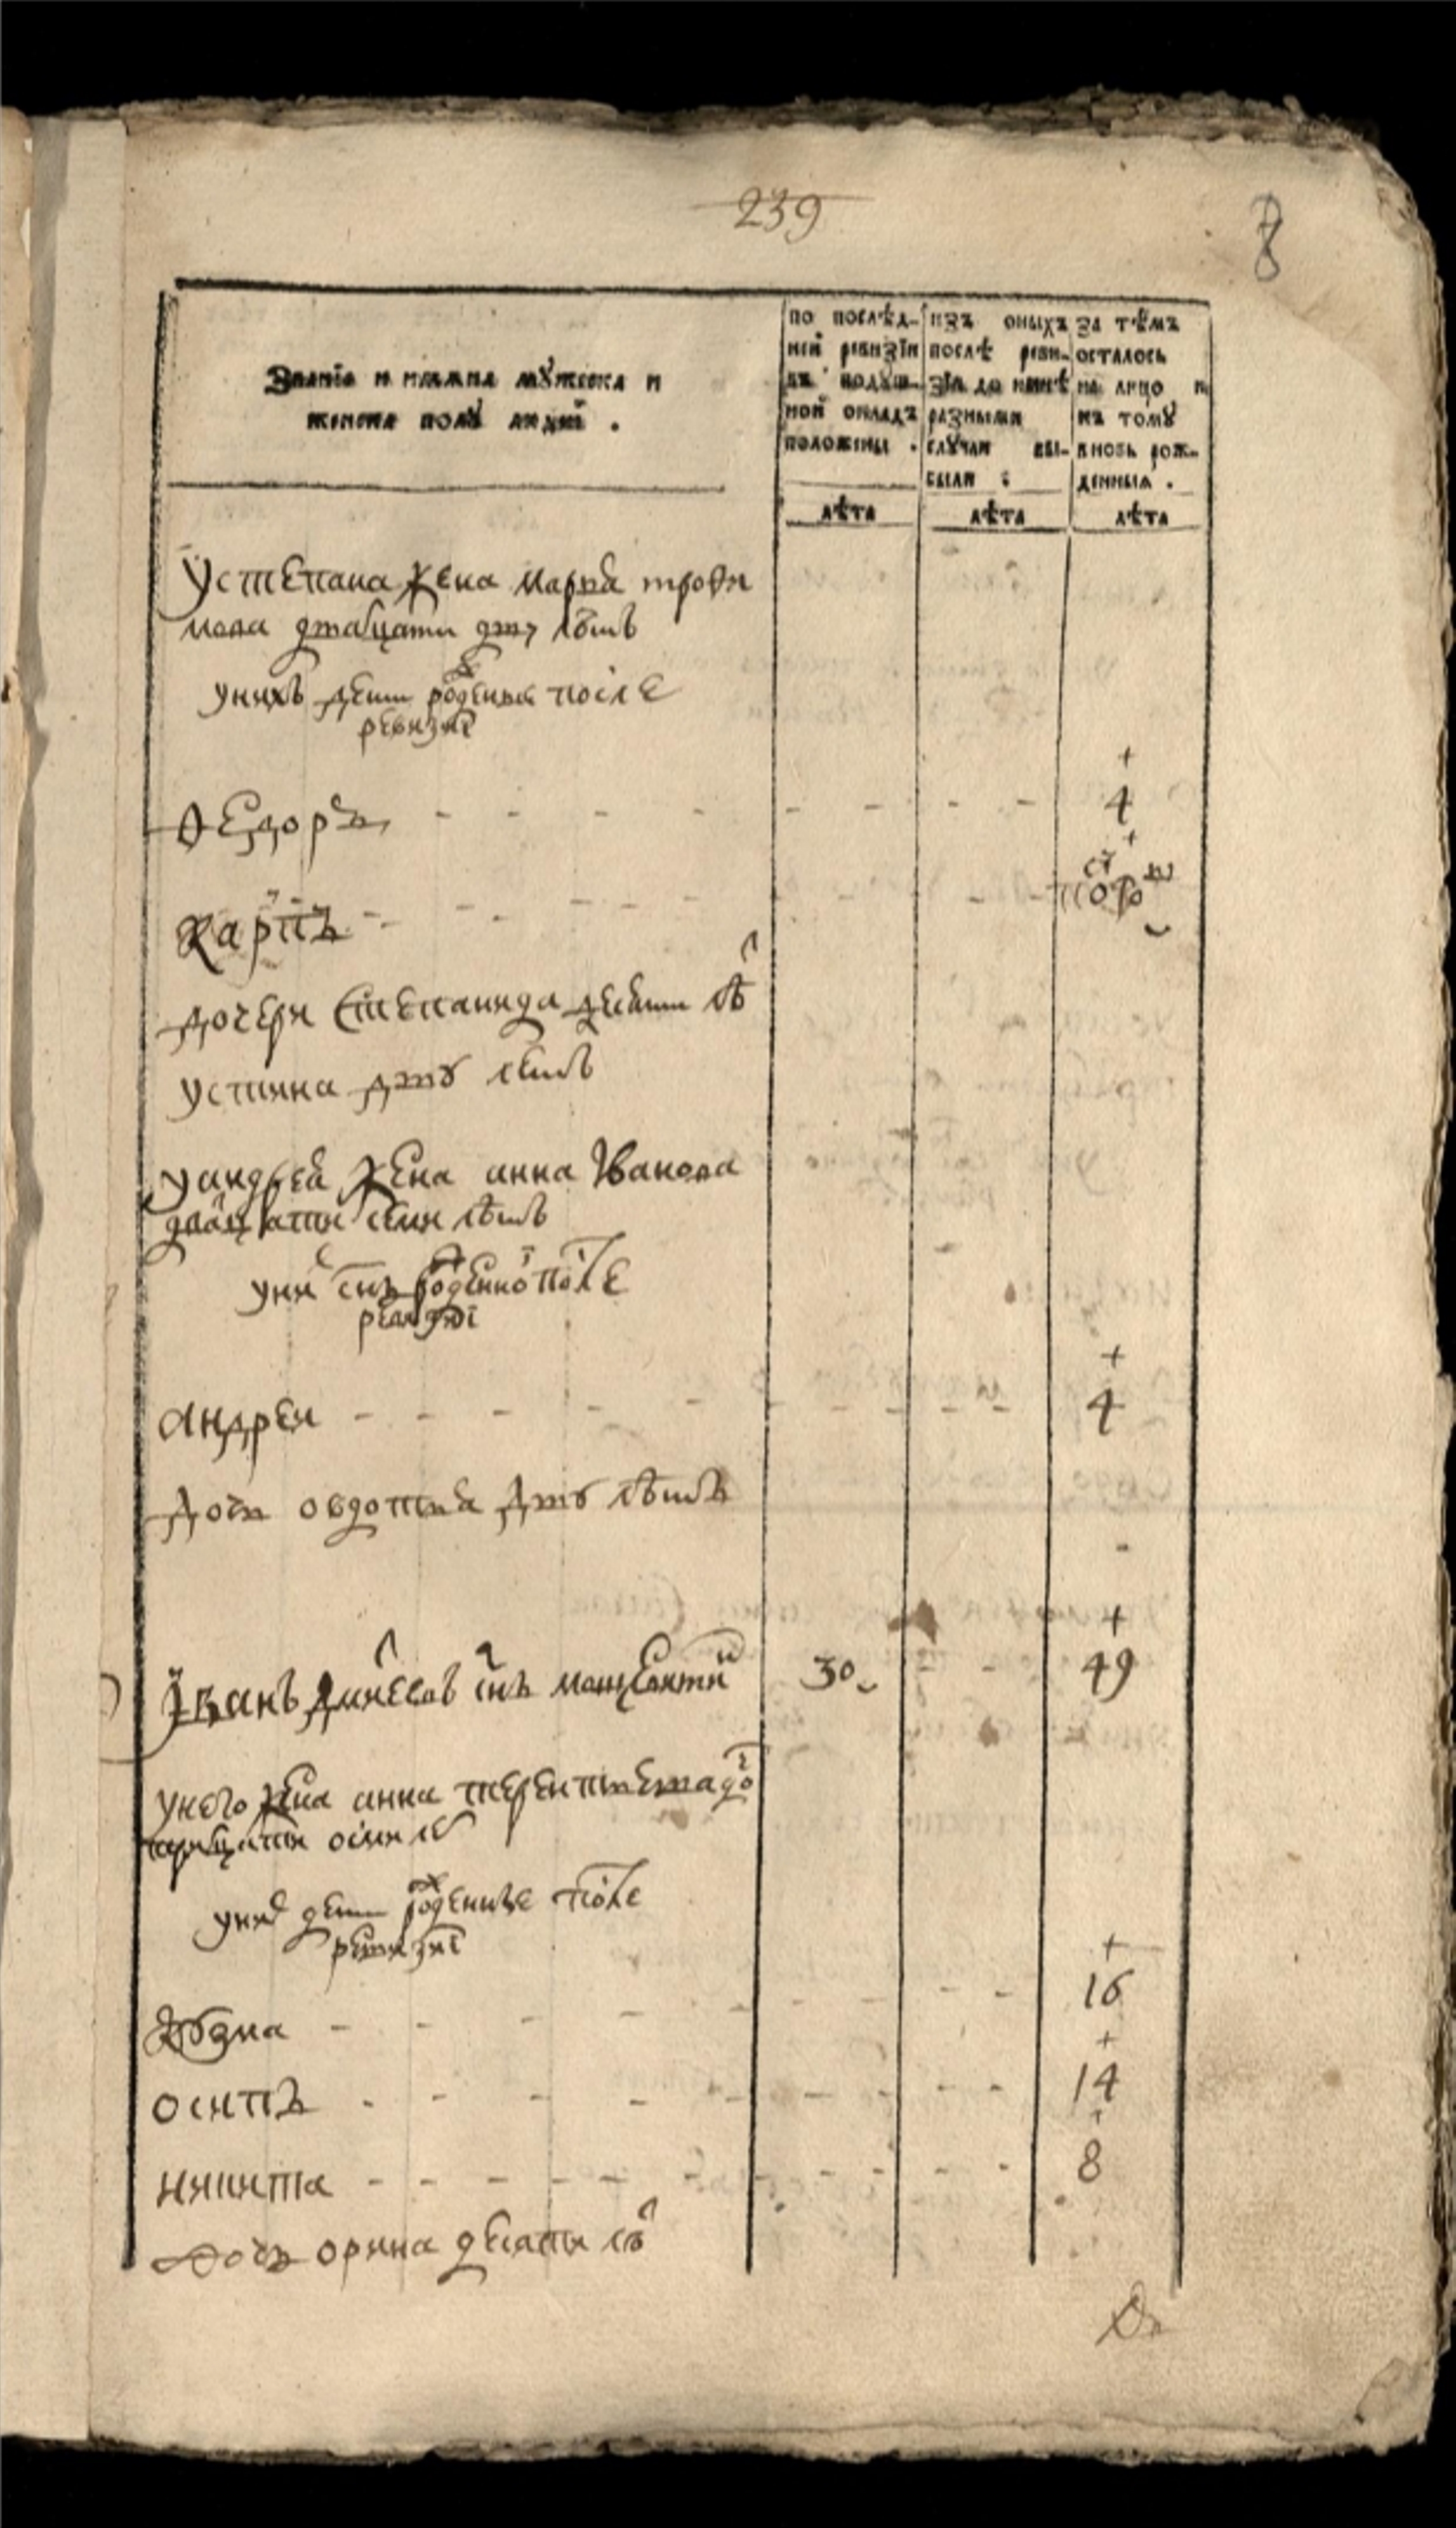 239
8
Званїе и имяна мꙋжеска и
женска полꙋ людей .
по послѣд-
ней ревизїи
въ подꙋш-
ной окладъ
положены .
изъ оныхъ
послѣ реви-
зїи до нынѣ
разными
слꙋчаи вы-
были :
За тѣмъ
осталось
на лицо и
къ томꙋ
вновь рож-
денныя .
лѣта
лѣта
лѣта
Устепана жена марья трофи
мова дватцати двꙋ лѣтъ
унихъ дети рожденые после
ревизиї
Ѳедоръ 4
карпъ
дочери Степанида десяти лѣ
устина двꙋ летъ
уандрея жена анна Іванова
дватцати семи лѣтъ
уни снъ рожденно после
ревизиї
андреи 4
дочь овдотья двꙋ лѣтъ
Їванъ снъ 30 49
унего жена анна терентьева до
осми лѣ
уних дети рожденые после
ревизиї
16
осипъ 14
никита 8
дочь орина десяти лѣ